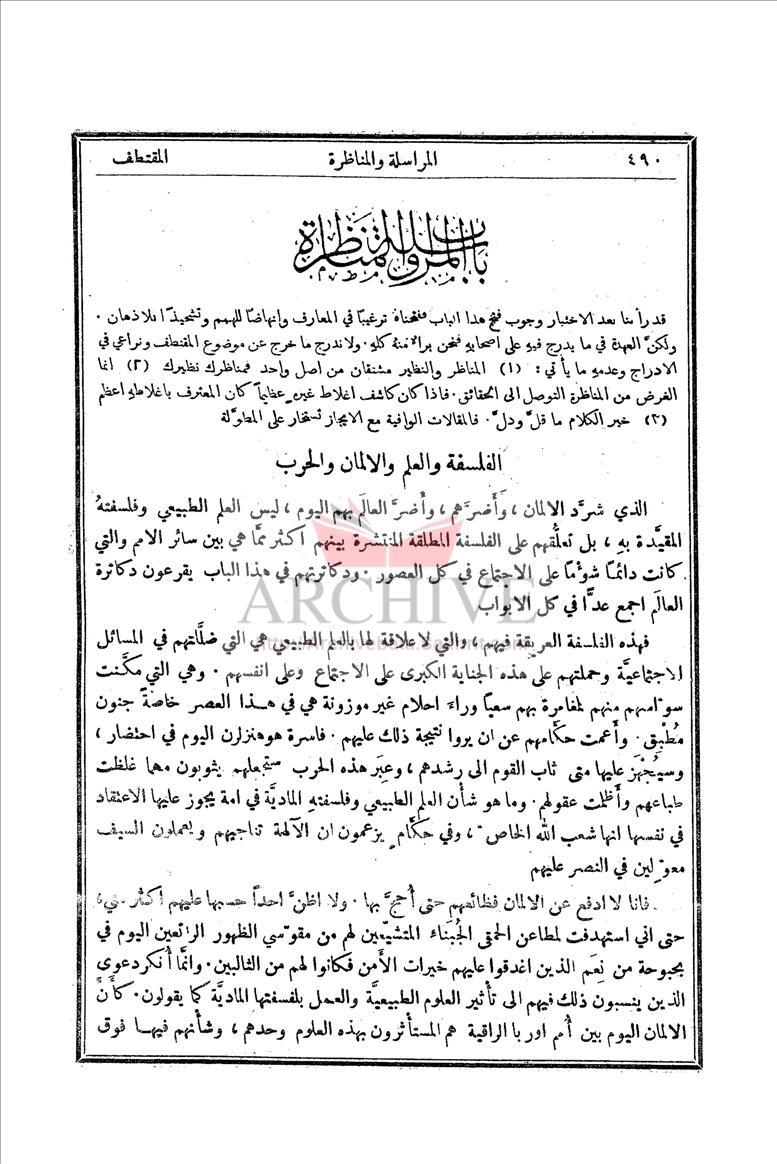 ٤٩٠ المراسلة والمناظرة المقتطف
باب المراسلة والمناظرة
قد رأينا بعد الاختبار وجوب فتح هذا الباب ففتحناهُ ترغيبًا في المعارف وإنهاضًا للهمم وتشحيذًا للاذهان .
ولكنَّ العهدة في ما يدرج فيهِ على اصحابهِ فنحن برالا منهُ كلهِ . ولا ندرج ما خرج عن موضوع المقتطف ونراعي في
الادراج وعدمهِ ما يأتي : (١) المناظر والنظير مشتقان من اصل واحد فمناظرك نظيرك (٢) انما
الغرض من المناظرة التوصل الى الحقائق . فاذا كان كاشف اغلاط غيرهِ عظيماً كان المعترف باغلاطهِ اعظم
(٣) خير الكلام ما قلَّ ودلَّ . فالمقالات الوافية مع الايجاز تستخار على المطوَّلة
الفلسفة والعلم والالمان والحرب
الذي شرَّد الالمان ، وأَضرَّهم ، وأَضرَّ العالَم بهم اليوم ، ليس العلم الطبيعي وفلسفتهُ
المقيَّدة بهِ ، بل تعلُّقهم على الفلسفة المطلقة المنتشرة بينهم أكثر ممَّا هي بين سائر الامم والتي
كانت دائمًا شؤمًا على الاجتماع في كل العصور . ودكاترتهم في هذا الباب يقرعون دكاترة
العالَم اجمع عدًّا في كل الابواب
ARCHIVE
فهذه الفلسفة العريقة فيهم ، والتي لا علاقة لها بالعلم الطبيعي هي التي ضلَّلتهم في المسائل
الاجتماعيَّة وحملتهم على هذه الجناية الكبرى على الاجتماع وعلى انفسهم . وهي التي مكَّنت
سوّاسهم منهم للمغامرة بهم سعيًا وراءَ احلام غير موزونة هي في هذا العصر خاصةً جنون
مُطْبِق . وأَعمت حكَّامهم عن ان يروا نتيجة ذلك عليهم . فاسرة هوهنزلرن اليوم في احتضار ،
وسيُجْهَز عليها متى ثاب القوم الى رشدهم ، وعِبَر هذه الحرب ستجعلهم يثوبون مهما غلظت
طباعهم وأَظلمت عقولهم . وما هو شأن العلم الطبيعي وفلسفتهِ الماديَّة في امة يجوز عليها الاعتقاد
في نفسها انها شعب الله الخاص ، وفي حكَّام يزعمون ان الآلهة تناجيهم ويعملون السيف
معوّلين في النصر عليهم
فانا لا ادفع عن الالمان فظائعهم حتى أُحجَّ بها . ولا اظنَّ احداً حسبها عليهم اكثر مني ،
حتى اني استهدفت لمطاعن الحمقى الجُبَناء المتشيّعين لهم من مقوّسي الظهور الراتعين اليوم في
بحبوحة من نِعَم الذين اغدقوا عليهم خيرات الأَمن فكانوا لهم من الثالبين . وانَّما أُنكر دعوى
الذين ينسبون ذلك فيهم الى تأثير العلوم الطبيعيَّة والعمل بفلسفتها الماديَّة كما يقولون . كأَنَّ
الالمان اليوم بين أُمم اوربا الراقية هم المستأثرون بهذه العلوم وحدهم ، وشأنهم فيها فوق